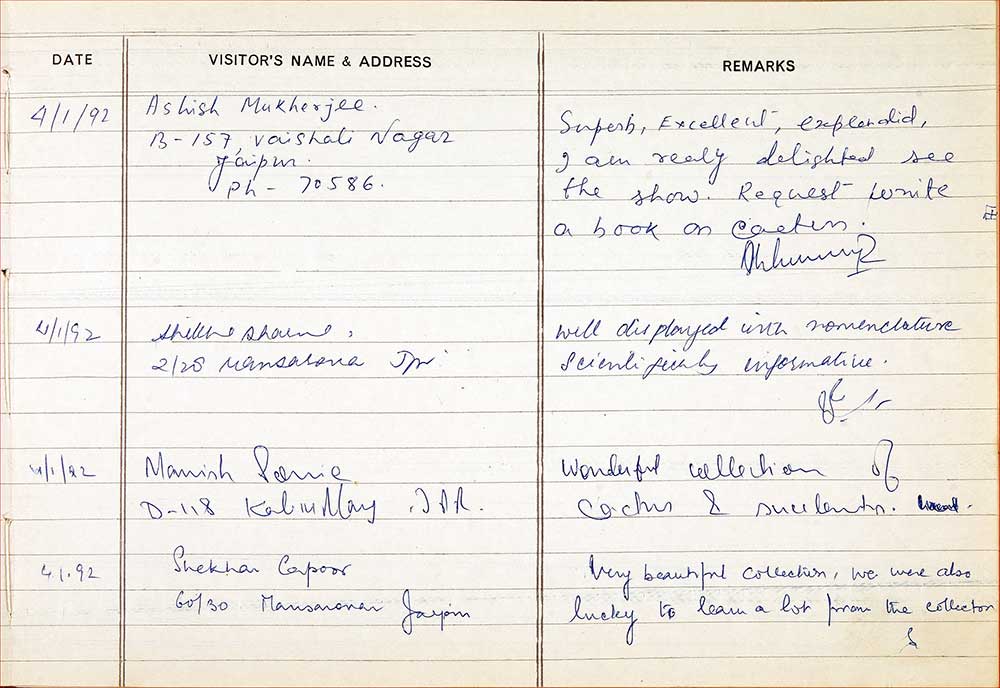 DATE
VISITOR'S NAME & ADDRESS
REMARKS
4/1/92
Ashish Mukherjee.
B-157, Vaishali Nagar
Jaipur.
Ph - 70586.
Superb, Excellent, explendid,
I am realy delighted see
the show. Request write
a book on Cactus.
4/1/92
2/28 Mansarova Jpr
Well displayed with nomenclature
Scientifically informative.
4/1/92
Manish
D-118
Wonderful collection of
Cactus & succulents.
4.1.92
Shekhar Capoor
60/30 Mansarovar Jaipur
Very beautiful collection, we were also
lucky to learn a lot from the collector